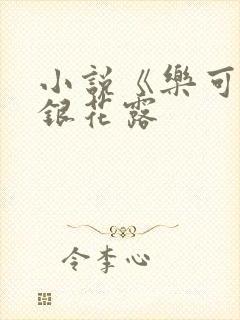 小説《樂可
銀花露
令李心